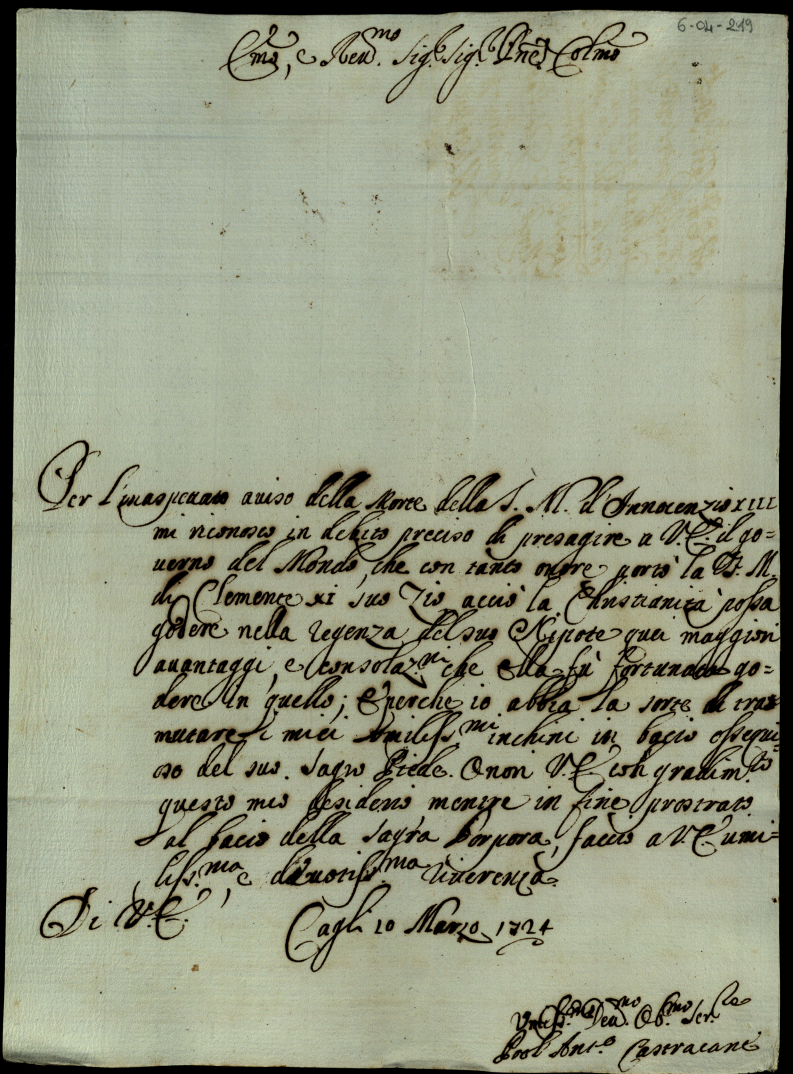 6-04-219
Em̃o, e Reu.mo Sig.r Sig.r Pne Colmo
Per l'inaspettato auiso della Morte della S. M. d'Innocenzio XIII
mi riconosco in debito preciso di presagire a V.E. il go=
uerno del Mondo, che con tanto onore portò la S. M.
di Clemente XI suo Zio, acciò la Christianità possa
godere nella regenza del suo Nipote quei maggiori
auantaggi, e consolaz.ni che ella fù fortunata go=
dere in quello; e perche io abbia la sorte di tras
mutare i miei umiliss.mi inchini in bacio ossequi=
oso del suo Sagro Piede. Onori V.E. con gradim.to
questo mio desiderio mentre in fine prostrato
al bacio della Sagra Porpora, faccio a V.E. umi=
liss.ma e diuotiss.ma riuerenza.
Di V.E. Cagli 10 Marzo 1724
Umiliss.mo Deu.mo Ob.mo Ser.re
Ant.o Castracane